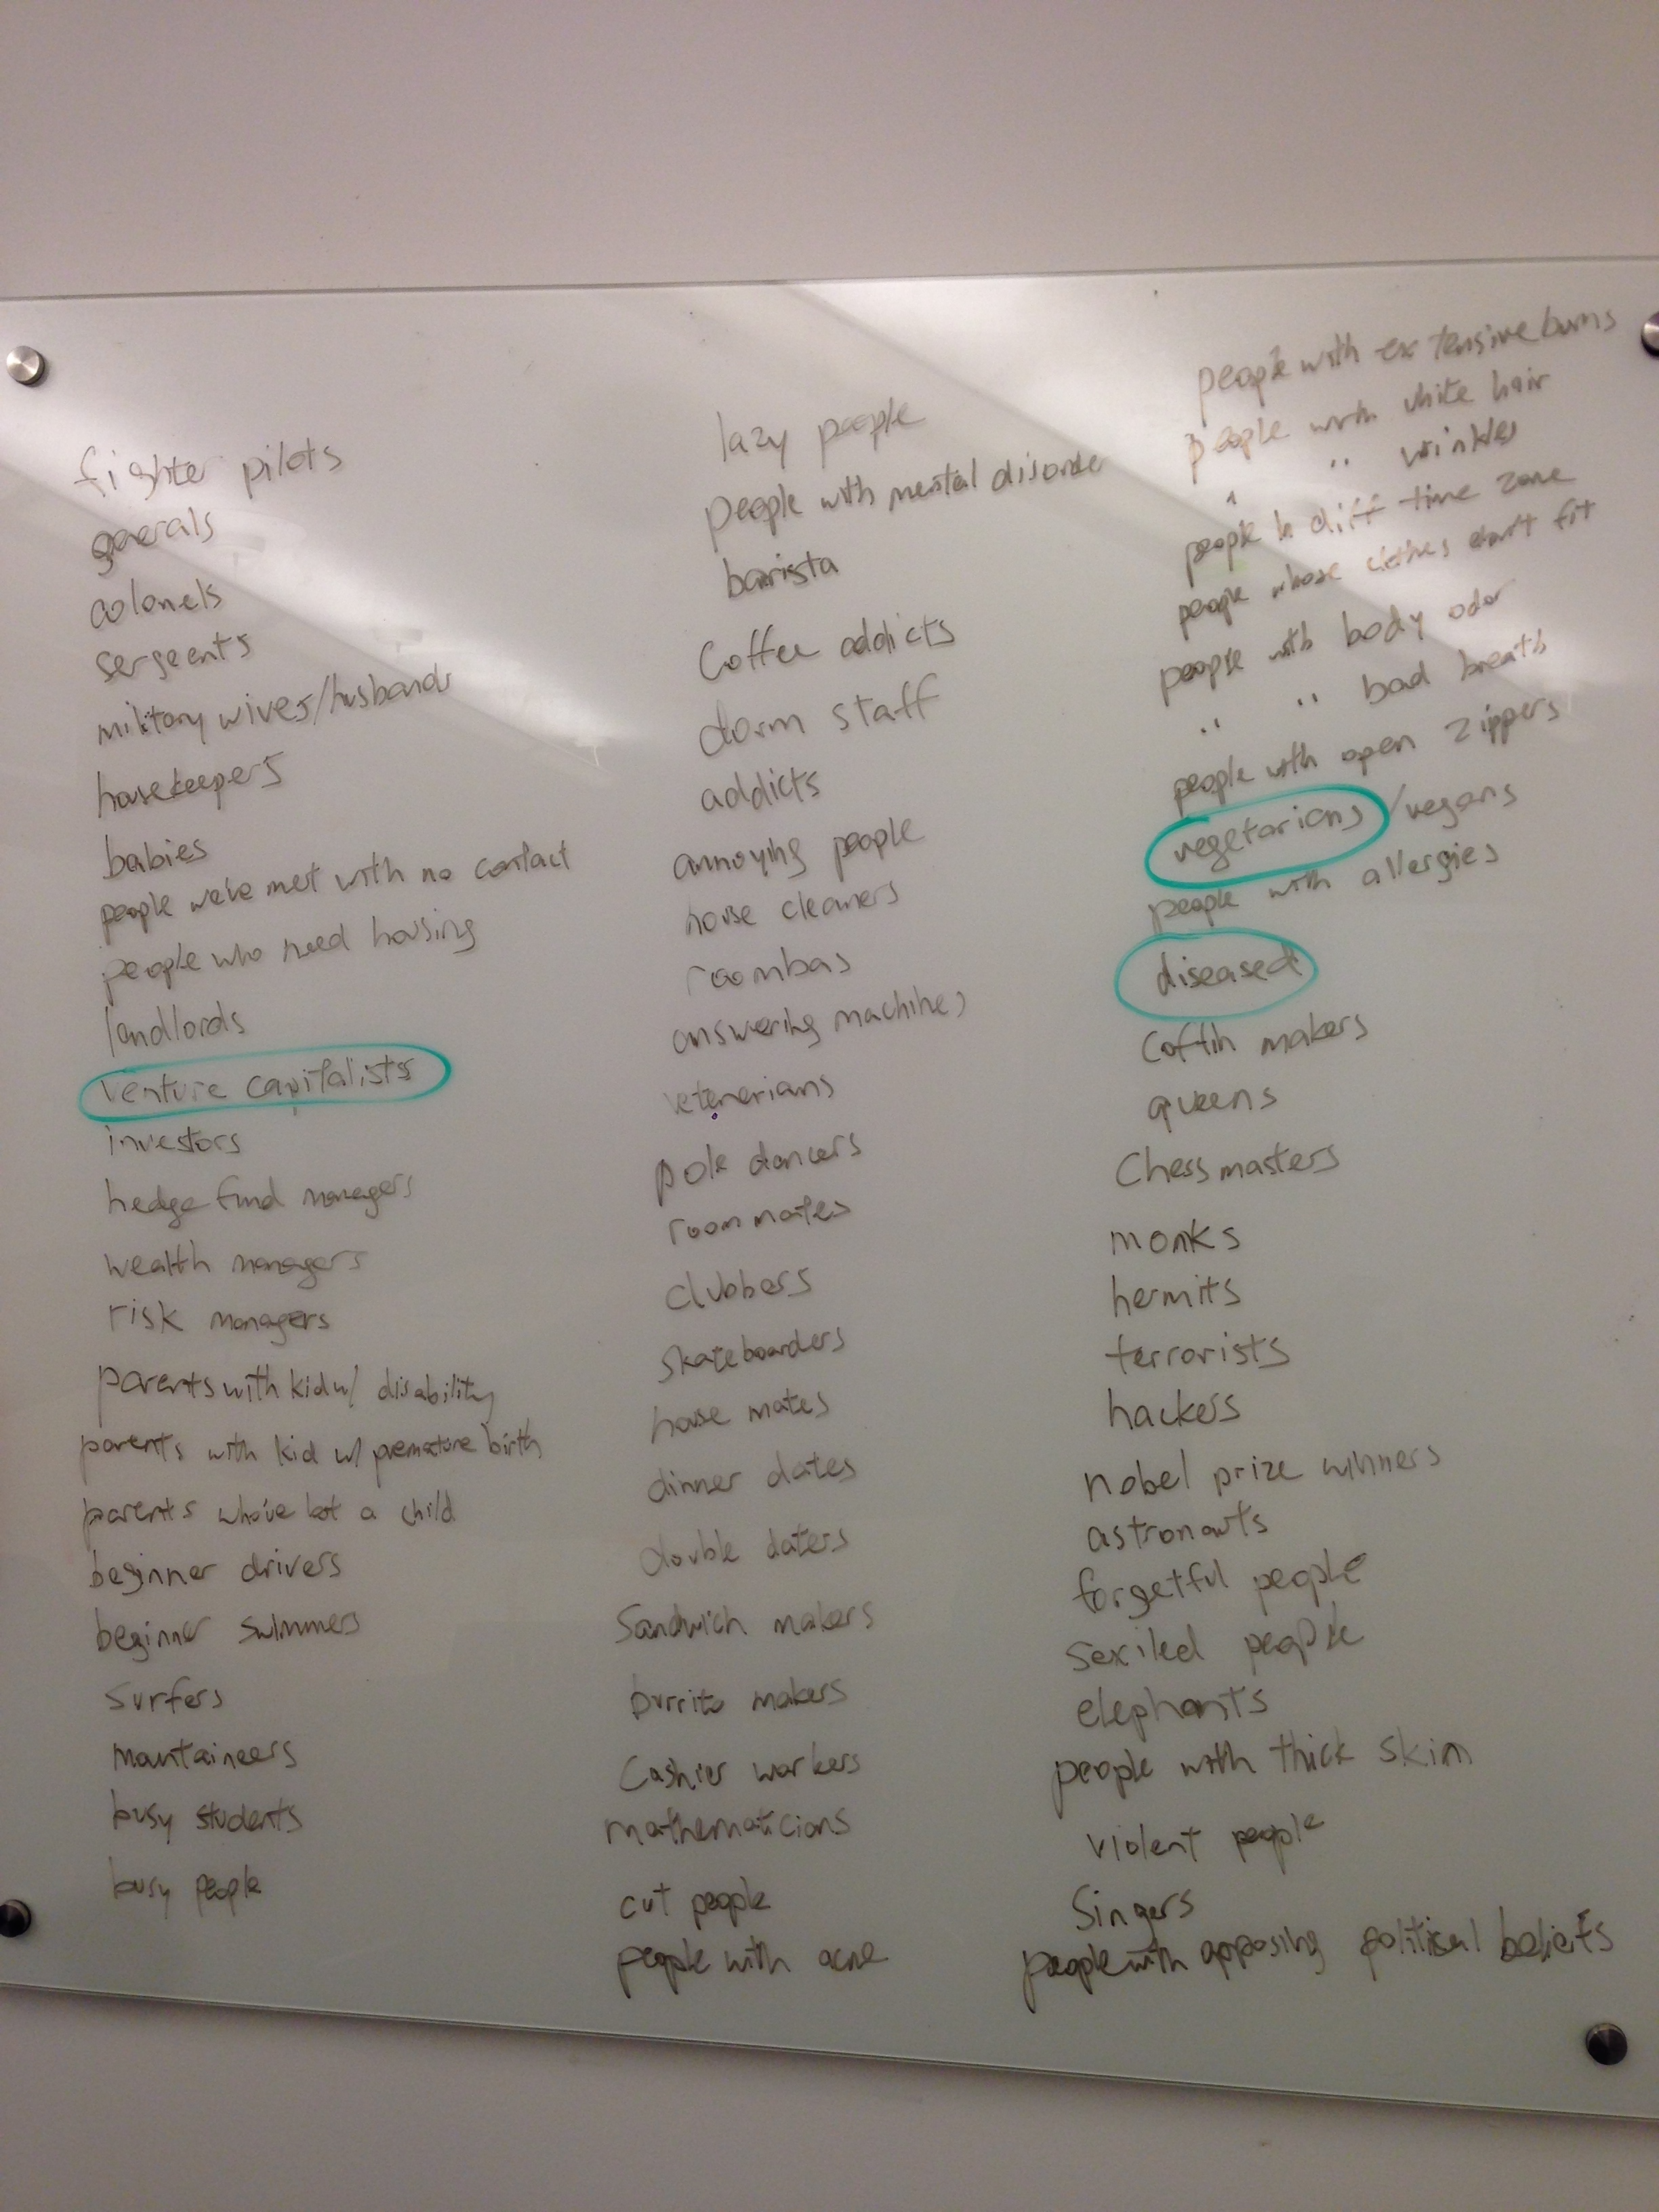 fighter pilots
generals
colonels
sergeents
military wives/husbands
housekeepers
babies
people we've met with no contact
people who need housing
landlords
venture capitalists
investors
hedge fund managers
wealth managers
risk managers
parents with kid w/ disability
parents with kid w/ premature birth
parents who've lost a child
beginner drivers
beginner swimmers
surfers
mountaineers
busy students
busy people
lazy people
people with mental disorder
barista
coffee addicts
dorm staff
addicts
annoying people
house cleaners
roombas
answering machines
vetenerians
pole dancers
room mates
clubbers
skateboarders
house mates
dinner dates
double daters
Sandwich makers
burrito makers
Cashier workers
mathematicians
cut people
people with acne
people with extensive burns
people with white hair
" " wrinkles
people in diff time zone
people whose clothes don't fit
people with body odor
" " bad breath
people with open zippers
vegetarians/vegans
people with allergies
diseased
Coffin makers
queens
Chess masters
monks
hermits
terrorists
hackers
nobel prize winners
astronauts
forgetful people
sexiled people
elephants
people with thick skin
violent people
Singers
people with opposing political beliefs